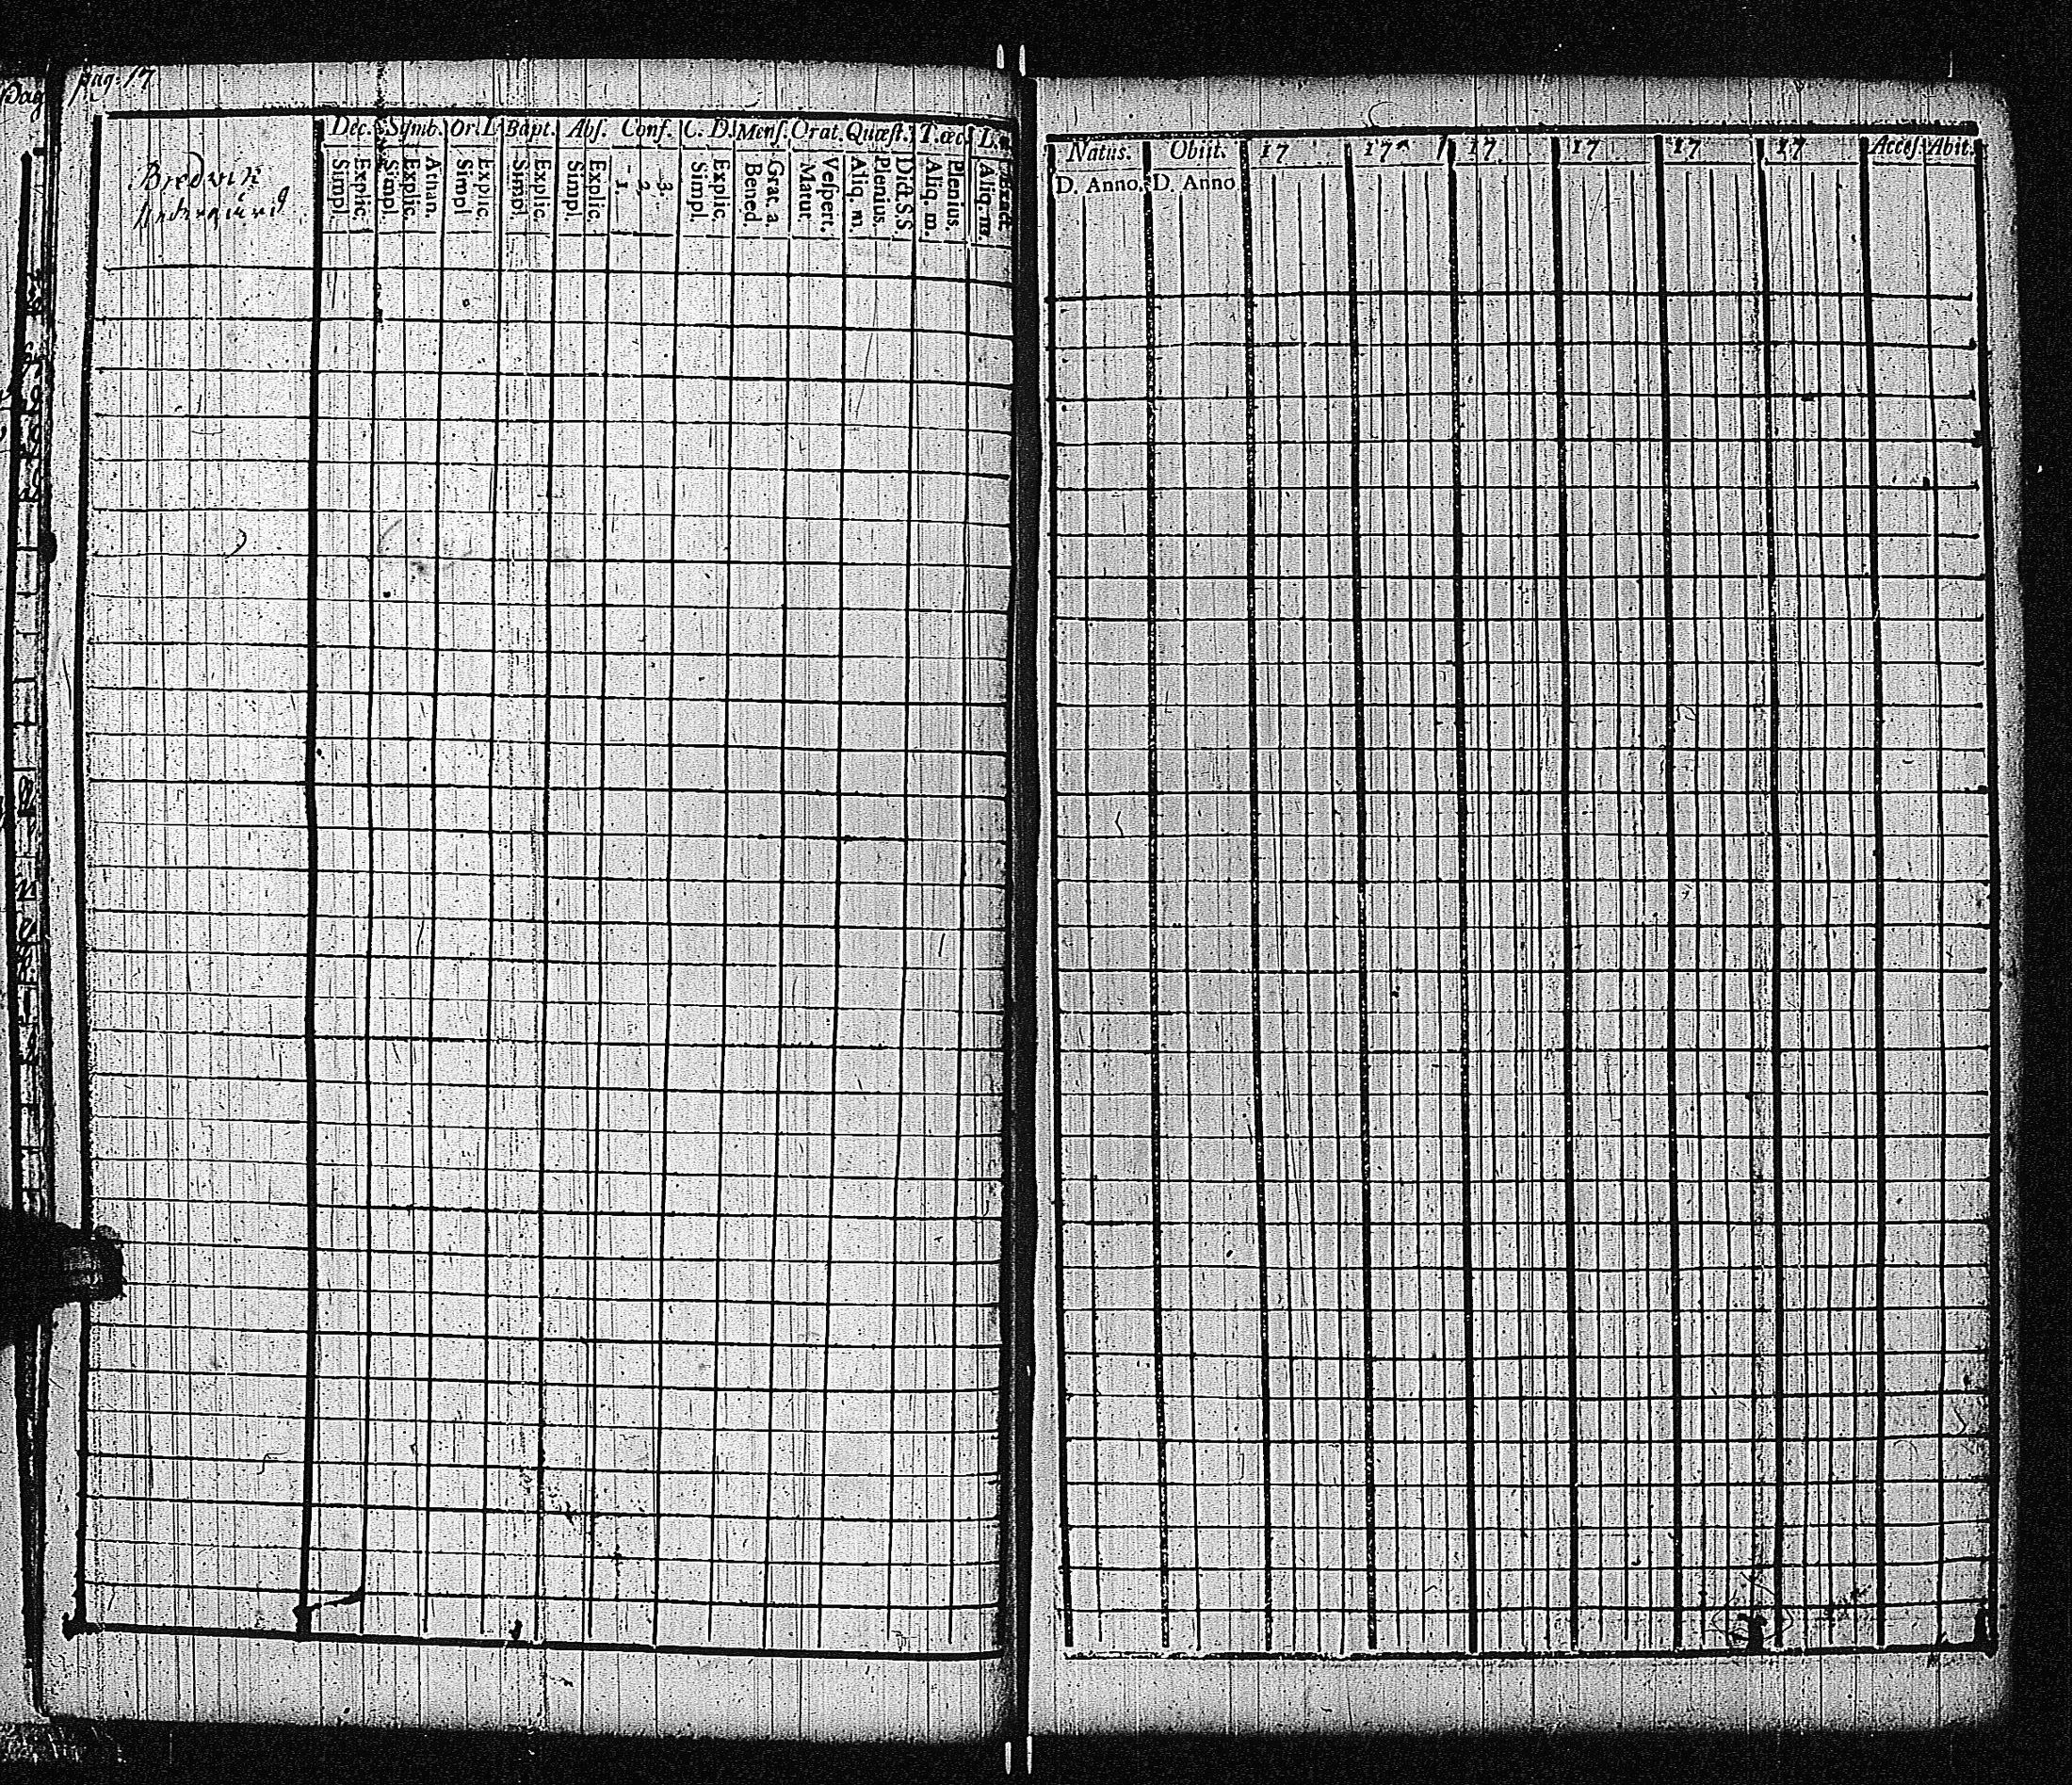 pag. 17
Pag
Bredwik
Dec. Symb. Or. D Bapt. Abs. Conf. C. D. Mens. Orat. Quæst. T. œc.
Simpl. Explic. Simpl. Explic. Athan. Simpl Explic. Simpl. Explic. Simpl Explic. 1. 2. 3. Simpl Explic. Bened. Grat. a. Matut. Vespert. Aliq. m. Plenius. Dict. S.S Aliq. m. Plenius. Aliq. m.
Natus. Obiit. 17 17 17 17 17 17 Acces. Abit.
D. Anno. D. Anno